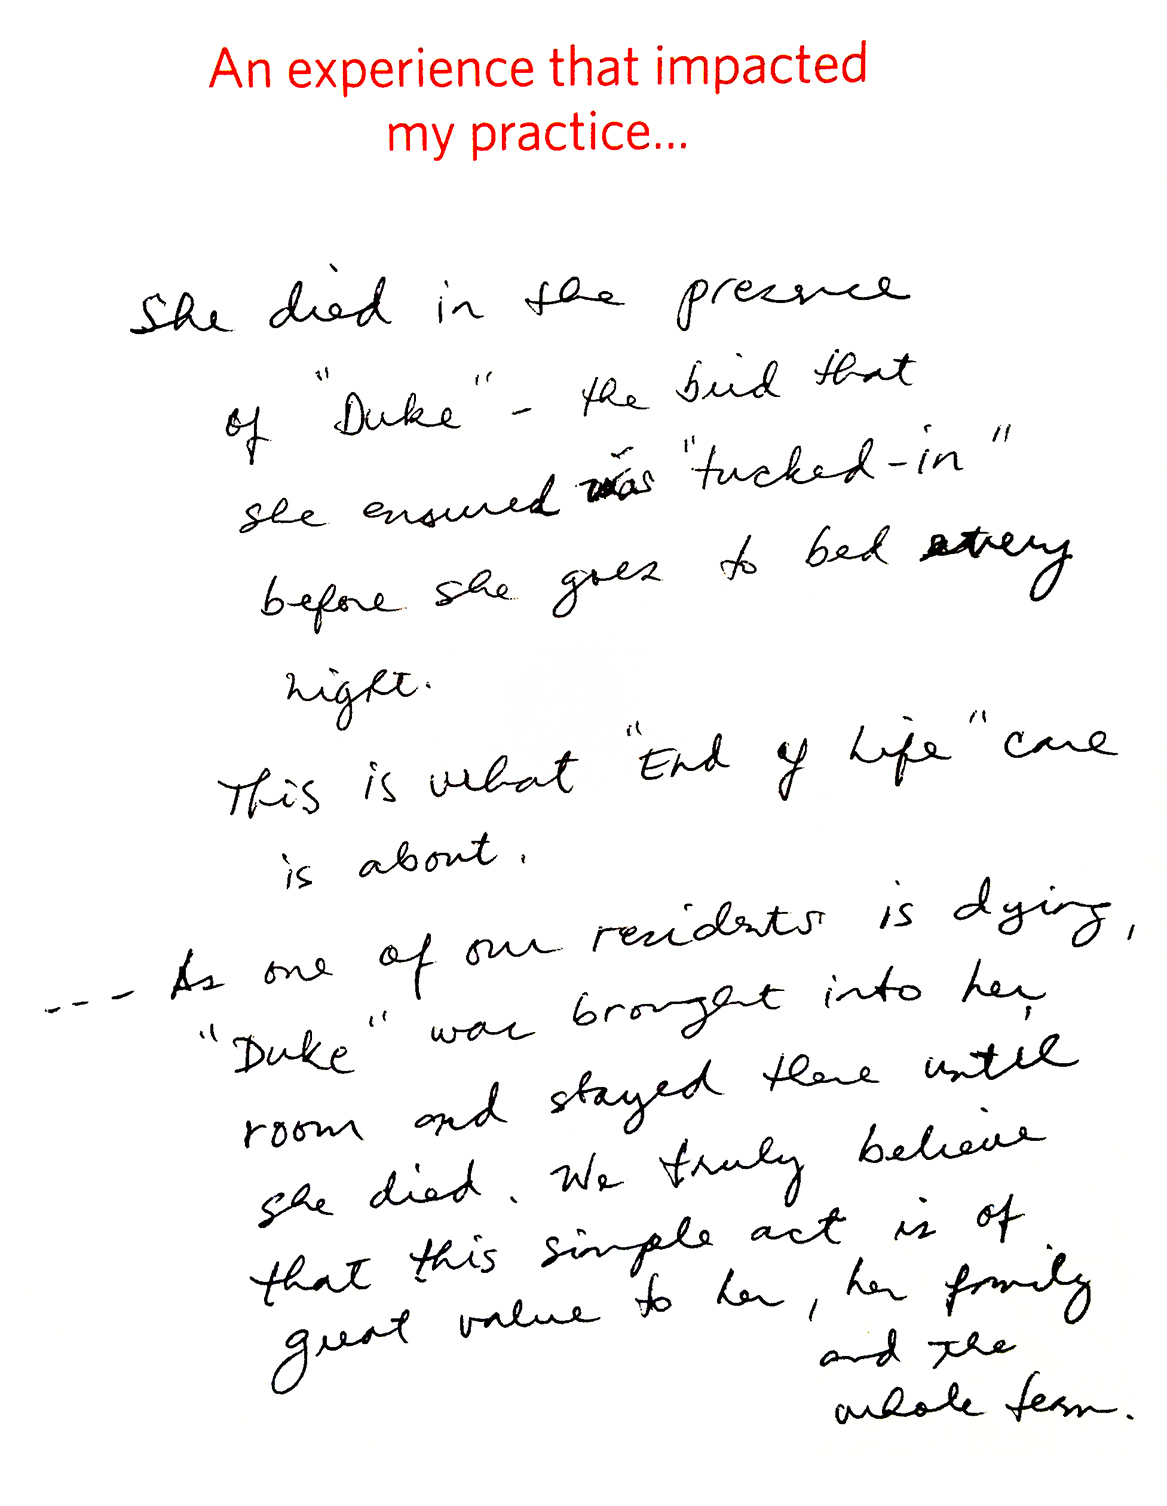 An experience that impacted
my practice...
She died in the presence
of "Duke" - the bird that
she ensured was "tucked-in"
before she goes to bed every
night.
This is what "End of Life" care
is about.
--- As one of our residents is dying,
"Duke" was brought into her
room and stayed there until
she died. We truly believe
that this simple act is of
great value to her, her family
and the
whole team.